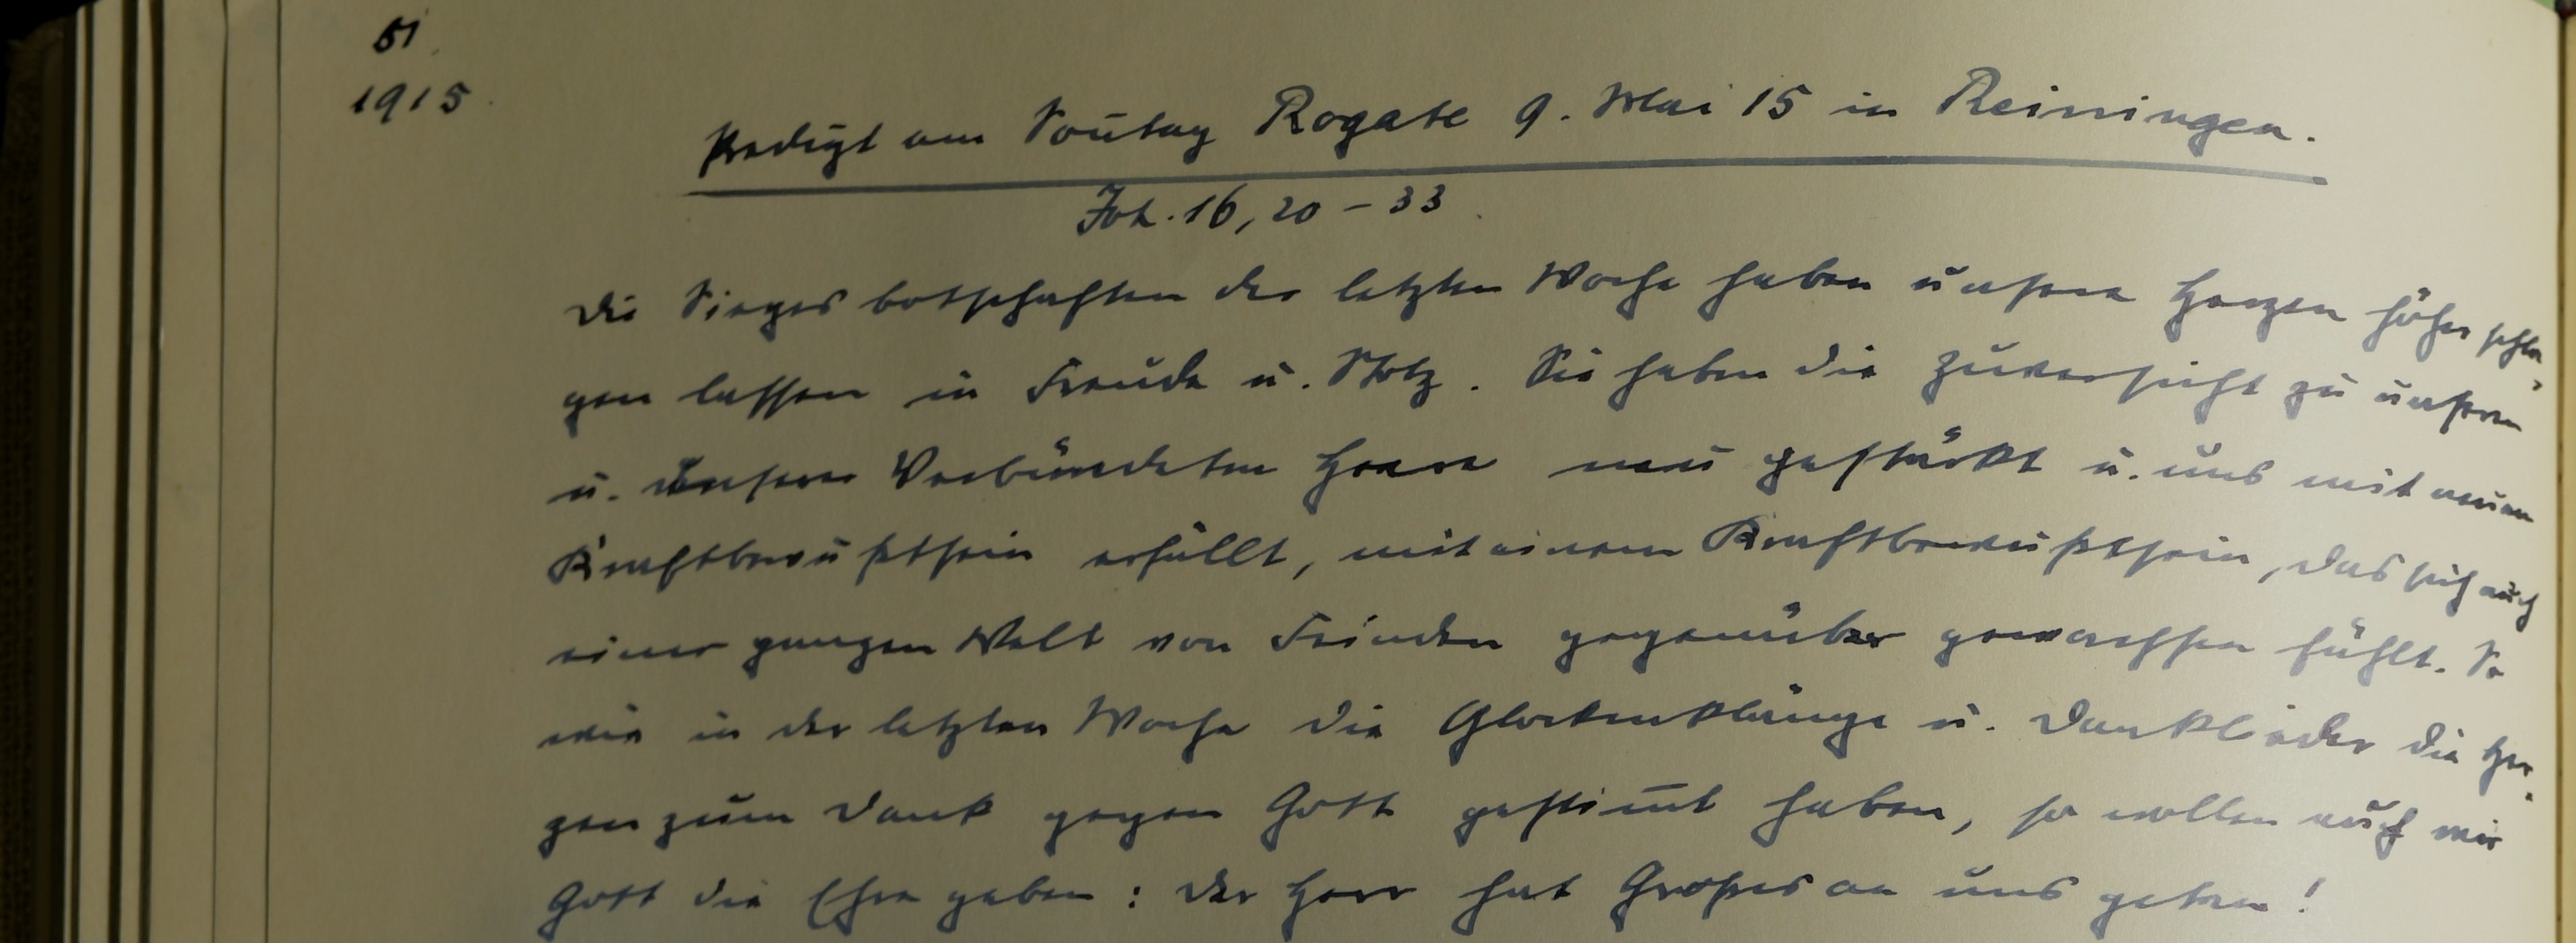 51.
1915.
Predigt am Soñtag Rogate 9. Mai 15 in Reiningen.
Joh. 16, 20 – 33.
Die Siegesbotschaften der letzten Woche haben unsere Herzen höher schla-
gen lassen in Freude u. Stolz. Sie haben die Zuversicht zu unserm
u. unserer Verbündeten Heere neu gestärkt u. uns mit neuem
Kraftbewußtsein erfüllt, mit einem Kraftbewußtsein, das sich auch
einer ganzen Welt von Feinden gegenüber gewachsen fühlt. So
wie in der letzten Woche die Glockenklänge u. Danklieder die Her-
zen zum Dank gegen Gott gestim̄t haben, so wollen auch wir
Gott die Ehre geben: der Herr hat Großes an uns getan!